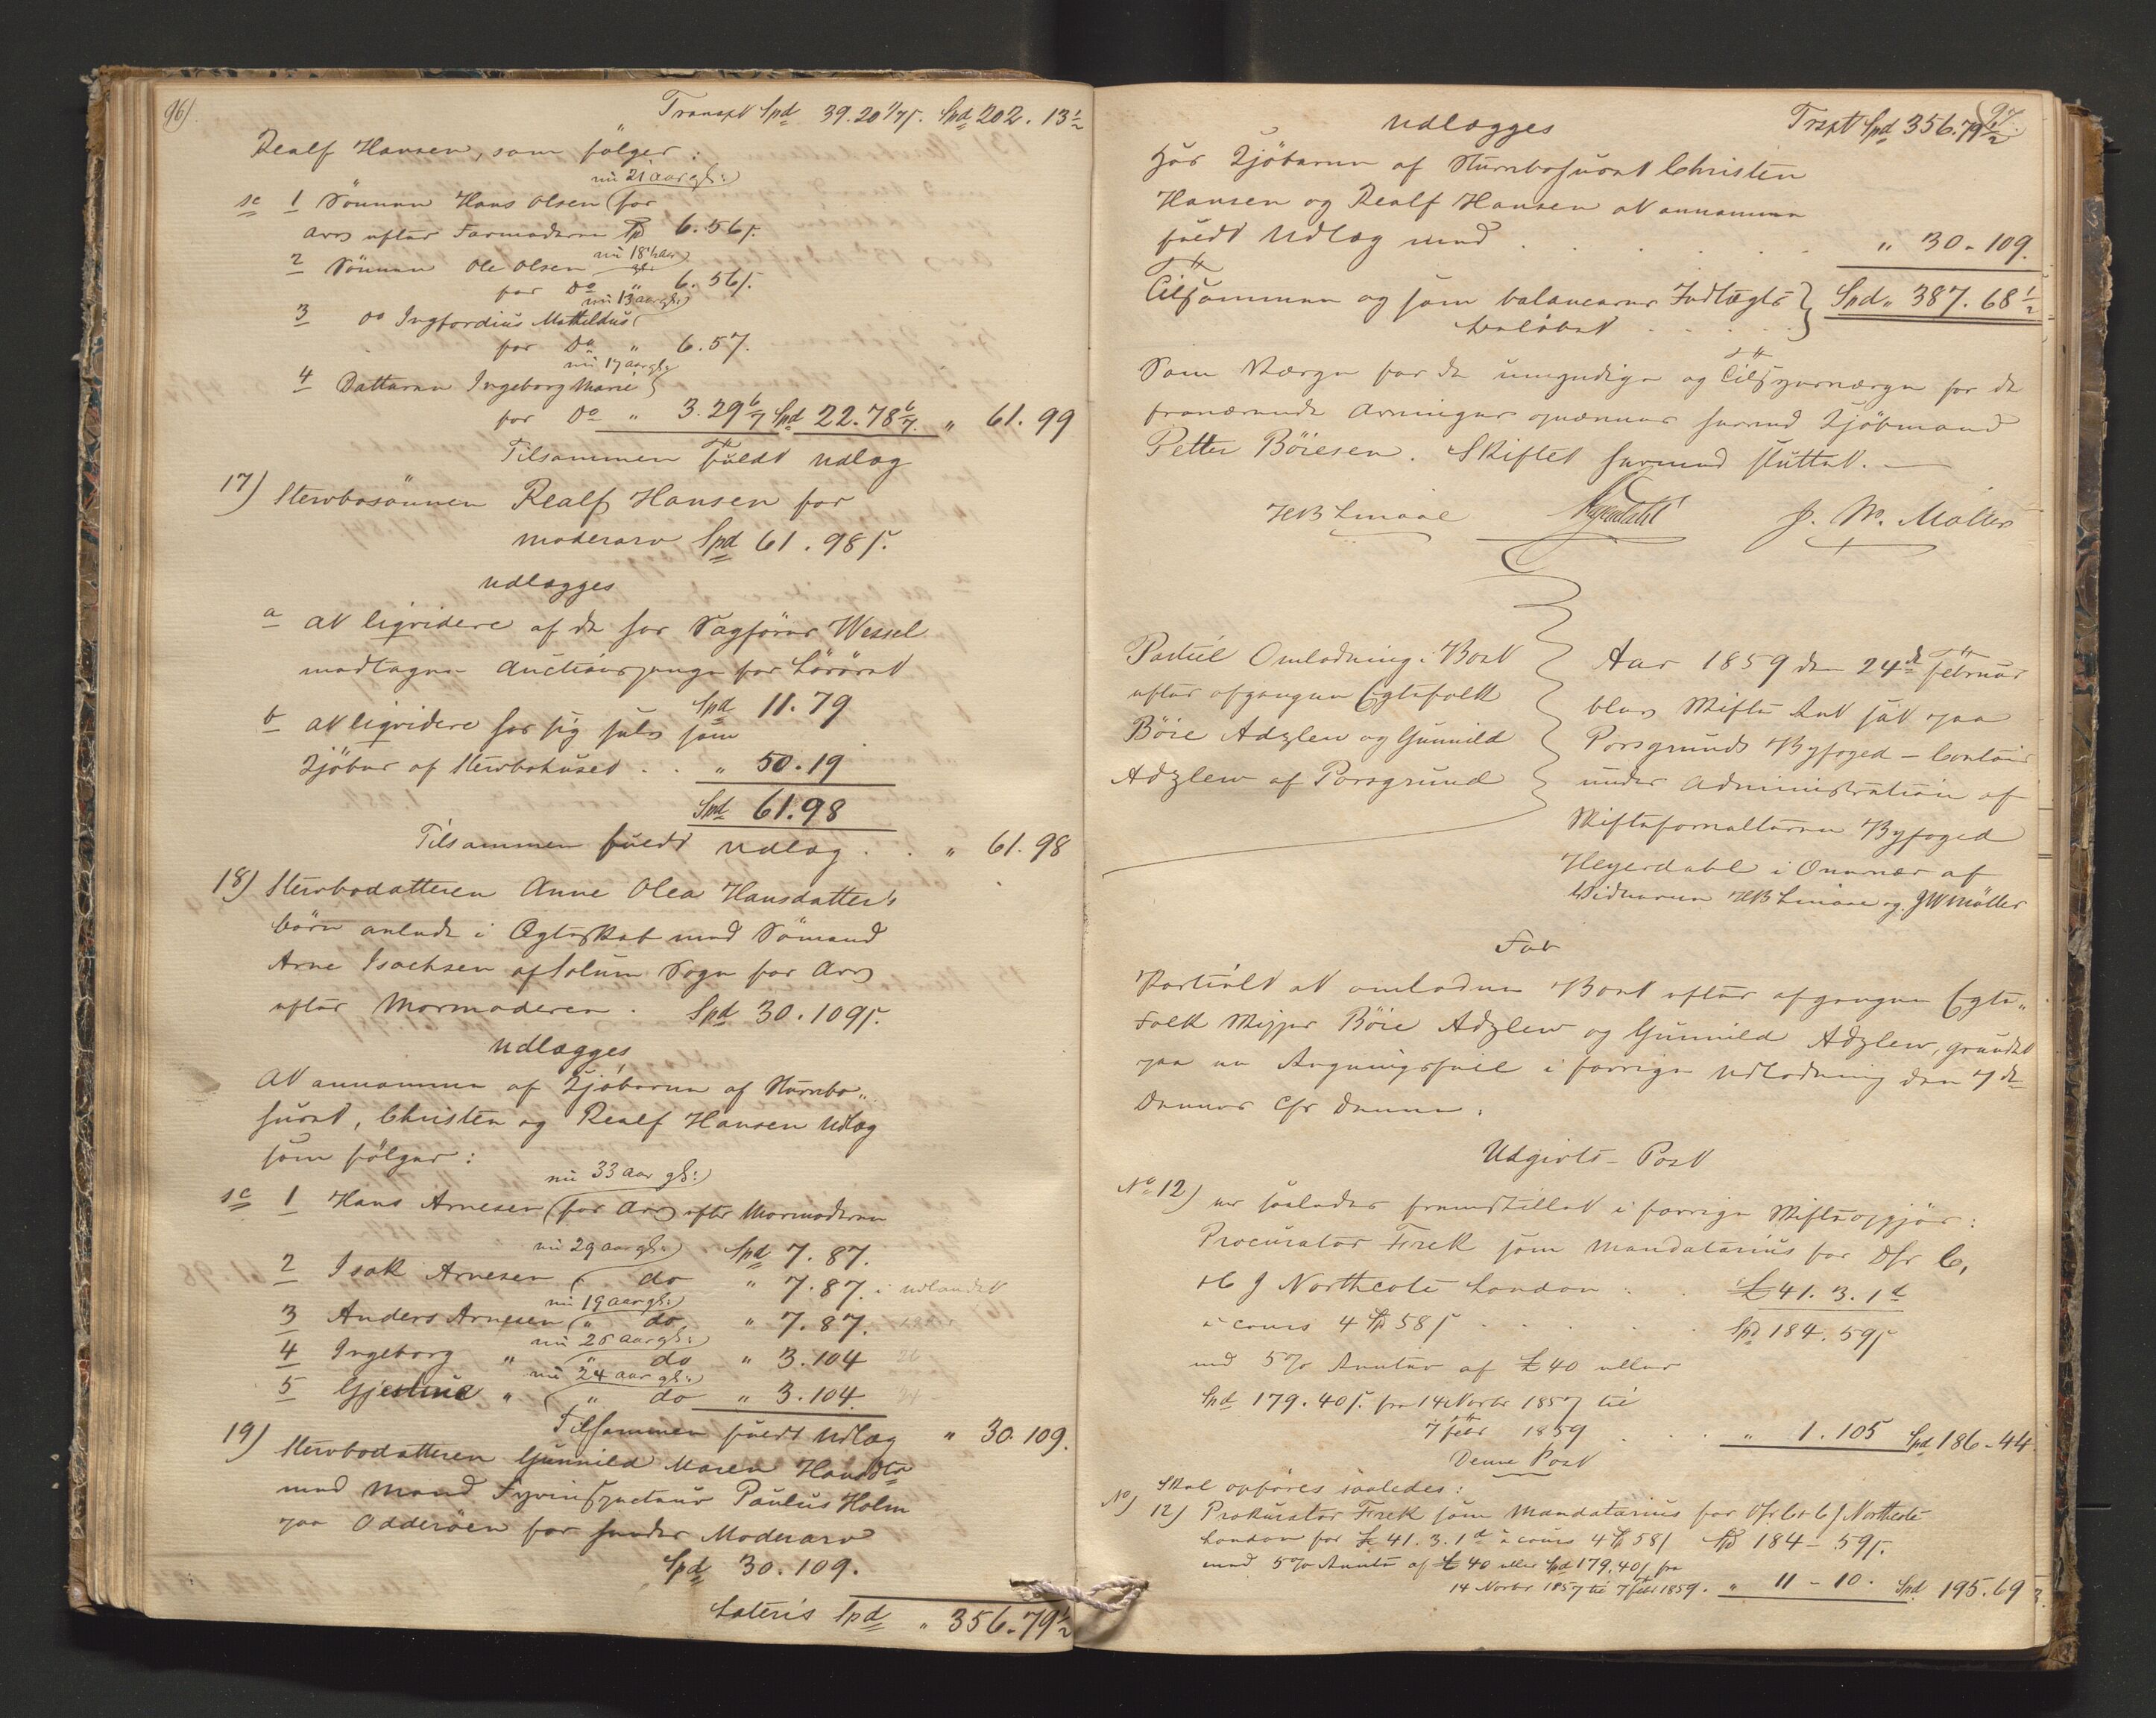 96).
Transpt Spd 39.20 1/7 ß. Spd 202. 13½
Realf Hansen, som følger:
nu 21 aar gl:)
sc 1 Sønnen Hans Olsen (for
Arv efter Farmoderen Sp 6.56ß.
nu 18½ aar gl:)
2 Sønnen Ole Olsen
for Do " 6.56ß.
nu 13 aar gl:)
3 do Ingfordius Mathildus(
for Do " 6.57.
nu 17 aar gl:
4 Datteren Ingeborg Marie)
for Do " 3.29 6/7 Spd 22.78 6/7. " 61.99
Tilsammen fuldt Udlog
17) Stervbosønnen Realf Hansen for
Moderarv Spd 61.98ß.
Udlægges
a At liqvidere af de hos Sagfører Wessel
modtagne Auctionspenge for Løsøret
Spd 11.79
b At liqvidere hos sig selv som
Kjøber af Stervbohuset . . " 50.19
Spd 61.98
Tilsammen fuldt Udlæg . . " 61.98
18) Stervbodatteren Anne Olea Hansdatter's
børn avlede i Ægteskab med Sømand
Arne Isachsen af Solum Sogn for Arv
efter Mormoderen . Spd 30.109ß.
Udlægges
At annamme af Kjøberne af Stervbo„
huset, Christen og Realf Hansen Udlæg
som følger:
nu 33 aar gl:)
sc 1 Hans Arnesen (for Arv efter Mormoderen
Spd 7.87.
nu 29 aar gl:)
2 Isak Arnesen ( do " 7.87. i udlandet
nu 19 aar gl:)
3 Anders Arnesen (" do " 7.87.
nu 26 aar gl:)
4 Ingeborg " " do " 3.104 26
nu 24 aar gl:)
5 Gjestine " (" do " 3.104. 24
Tilsammen fuldt Udlæg " 30.109.
19) Stervbodatteren Gunnild Maren Hansdtr
med Mand Fyrinspecteur Paulus Holm
paa Odderøen for hendes Moderarv
Spd 30.109.
Lateris Spd " 356.79½
97.
Trspt Spd 356.79½
Udlægges
hos Kjøberne af Stervbohuset Christen
Hansen og Realf Hansen at annamme
fuldt Udlæg med . . . . " 30-109.
Tilsammen og som balancerer Indtægts } Spd " 387.68½
beløbet . . . .
Som Værge for de umyndige og Tilsynsværge for de
fraværende Arvinger opnævnes herved Kjøbmand
Petter Böiesen. Skiftet hermed sluttet. —
HB Linaae Heyerdahl J. W. Møller
Partiel Omlodning i Boet
efter afgangne Egtefolk
Böie Adzlew og Gunnild
Adzlew af Porsgrund
Aar 1859 den 24de Februar
blev Skifte Ret sat paa
Porsgrunds Byfoged-Contoir
under Administration af
Skifteforvalteren Byfoged
Heyerdahl i Overvær af
Vidnerne HB Linaae og JW Møller
For
Partielt at omlodne Boet efter afgangne Egte„
folk Skipper Böie Adzlew og Gunnild Adzlew, grundet
paa en Regningsfeil i forrige Udlodning den 7 de
Dennes cfr Denne.
Udgivts-Post
No 12) er saaledes fremstillet i forrige Skifteopgjør:
Procurator Frek som Mandatarius for Hr C.
+ C J Northcote London . . £ 41. 3. 1d
à cours 4 Sp 58ß . . . . . Spd 184. 59ß
med 5% Renter af £ 40 eller
Spd 179.40ß. fra 14 Novbr 1857 til
7 febr 1859 . . . " 1.105 Spd 186-44.
Denne Post
skal opføres saaledes:
No 12) Prokurator Frek som Mandatarius for Hr C + C J Northcote
London for £ 41.3.1d à cours 4 Sp 58ß Spd 184-59ß.
med 5% Rente af £ 40 eller Spd 179.40ß fra
14 Novbr 1857 til 7 febr 1859. " 11-10. Spd 195.69